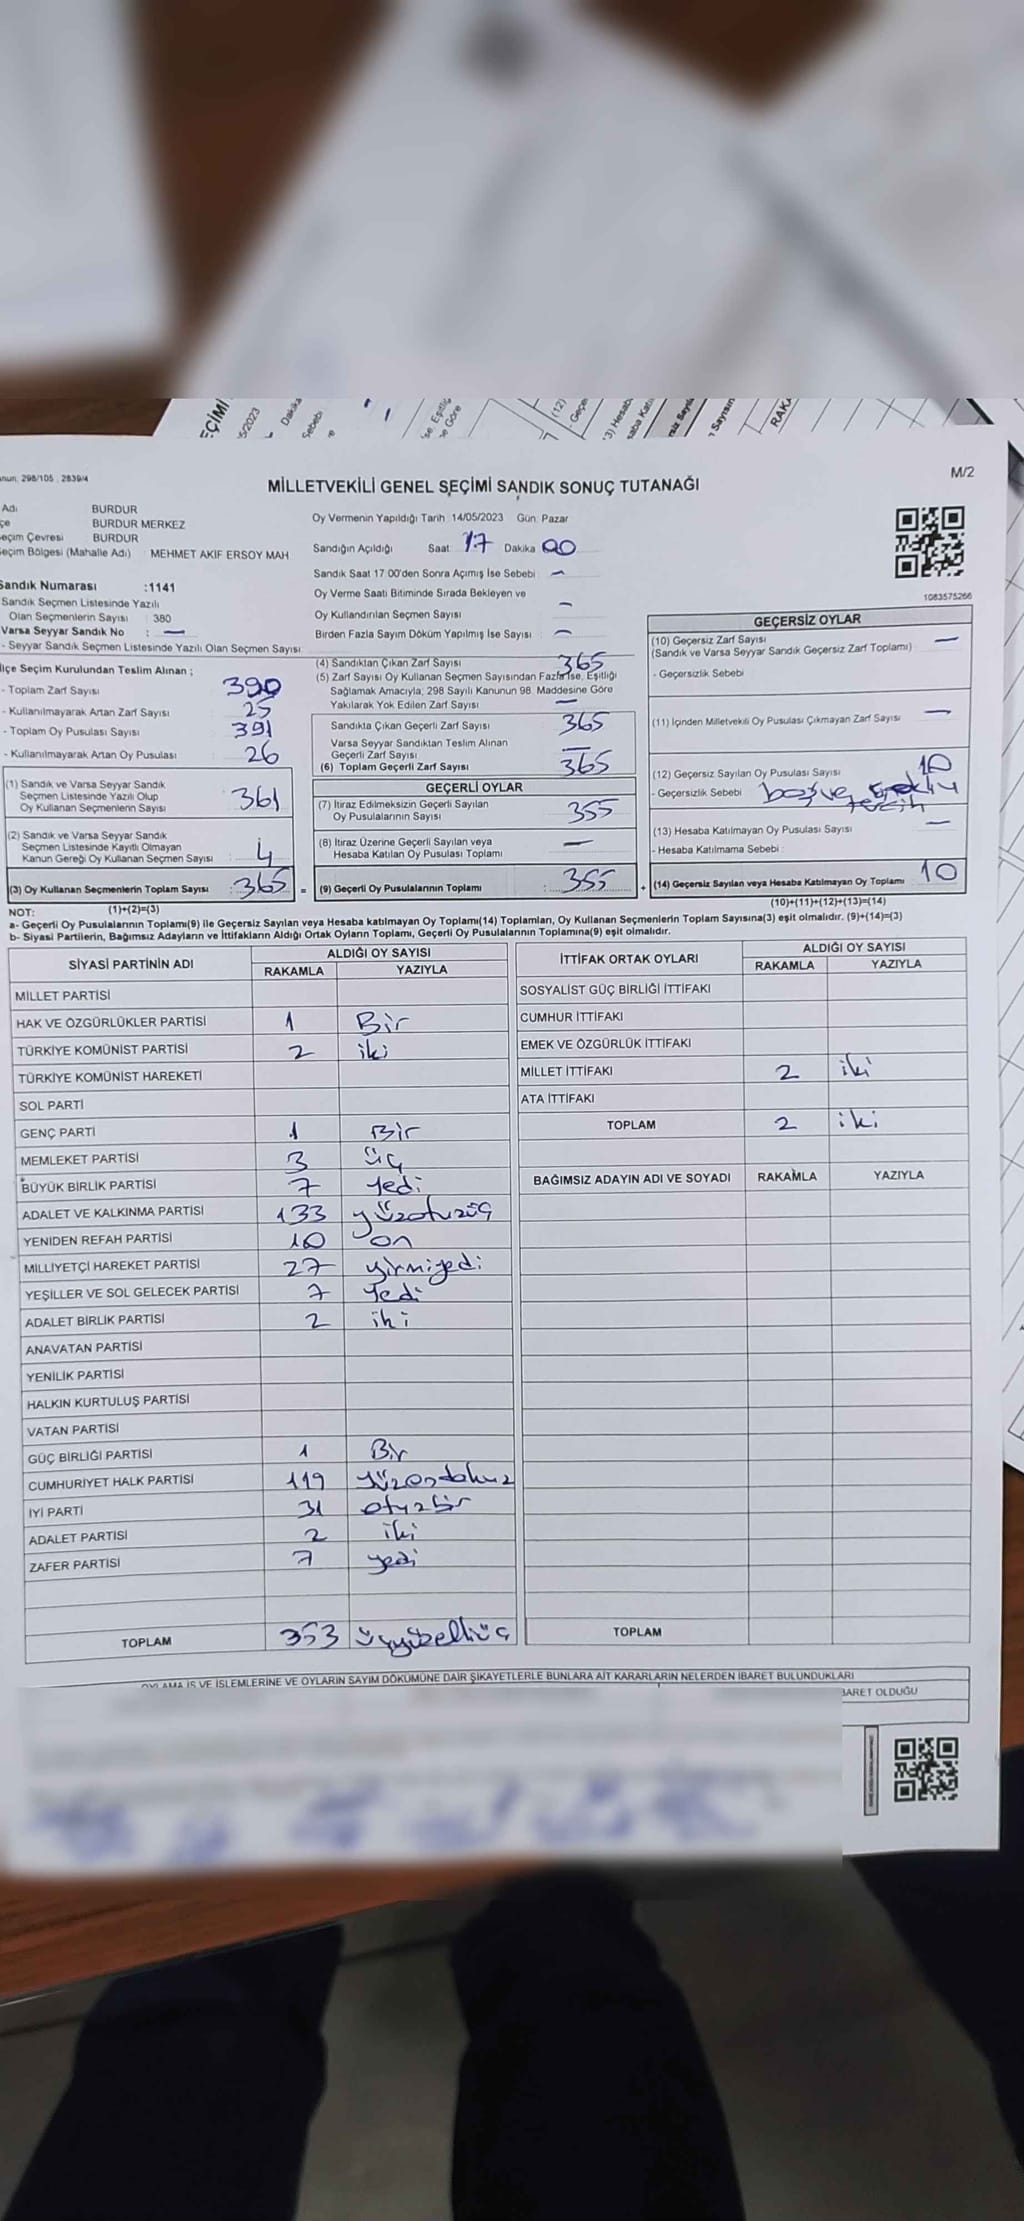 EÇİMİ
5/2023
Dakika
Sebebi
(12)
RAKA
298/105 , 2839/4
M/2
MİLLETVEKİLİ GENEL SEÇİMİ SANDIK SONUÇ TUTANAĞI
Adı BURDUR
çe BURDUR MERKEZ
eçim Çevresi BURDUR
eçim Bölgesi (Mahalle Adı) MEHMET AKİF ERSOY MAH
Sandık Numarası :1141
Sandık Seçmen Listesinde Yazılı
Olan Seçmenlerin Sayısı : 380
Varsa Seyyar Sandık No : —
- Seyyar Sandık Seçmen Listesinde Yazılı Olan Seçmen Sayısı
Oy Vermenin Yapıldığı Tarih 14/05/2023 Gün: Pazar
Sandığın Açıldığı Saat 17 Dakika 00
Sandık Saat 17:00'den Sonra Açımış İse Sebebi : —
Oy Verme Saati Bitiminde Sırada Bekleyen ve
Oy Kullandırılan Seçmen Sayısı —
Birden Fazla Sayım Döküm Yapılmış İse Sayısı : —
1083575266
ilçe Seçim Kurulundan Teslim Alınan ;
- Toplam Zarf Sayısı 390
- Kullanılmayarak Artan Zarf Sayısı 25
- Toplam Oy Pusulası Sayısı 391
- Kullanılmayarak Artan Oy Pusulası 26
(1) Sandık ve Varsa Seyyar Sandık
Seçmen Listesinde Yazılı Olup
Oy Kullanan Seçmenlerin Sayısı 361
(2) Sandık ve Varsa Seyyar Sandık
Seçmen Listesinde Kayıtlı Olmayan
Kanun Gereği Oy Kullanan Seçmen Sayısı 4
(3) Oy Kullanan Seçmenlerin Toplam Sayısı : 365 =
(4) Sandıktan Çıkan Zarf Sayısı 365
(5) Zarf Sayısı Oy Kullanan Seçmen Sayısından Fazla İse, Eşitliği
Sağlamak Amacıyla, 298 Sayılı Kanunun 98. Maddesine Göre
Yakılarak Yok Edilen Zarf Sayısı —
Sandıkta Çıkan Geçerli Zarf Sayısı 365
Varsa Seyyar Sandıktan Teslim Alınan
Geçerli Zarf Sayısı —
(6) Toplam Geçerli Zarf Sayısı 365
GEÇERLİ OYLAR
(7) İtiraz Edilmeksizin Geçerli Sayılan
Oy Pusulalarının Sayısı 355
(8) İtiraz Üzerine Geçerli Sayılan veya
Hesaba Katılan Oy Pusulası Toplamı —
(9) Geçerli Oy Pusulalarının Toplamı : 355 +
GEÇERSİZ OYLAR
(10) Geçersiz Zarf Sayısı —
(Sandık ve Varsa Seyyar Sandık Geçersiz Zarf Toplamı)
- Geçersizlik Sebebi
(11) İçinden Milletvekili Oy Pusulası Çıkmayan Zarf Sayısı —
(12) Geçersiz Sayılan Oy Pusulası Sayısı 10
- Geçersizlik Sebebi boş ve
(13) Hesaba Katılmayan Oy Pusulası Sayısı —
- Hesaba Katılmama Sebebi :
(14) Geçersiz Sayılan veya Hesaba Katılmayan Oy Toplamı 10
NOT: (1)+(2)=(3)
(10)+(11)+(12)+(13)=(14)
a- Geçerli Oy Pusulalarının Toplamı(9) ile Geçersiz Sayılan veya Hesaba katılmayan Oy Toplamı(14) Toplamları, Oy Kullanan Seçmenlerin Toplam Sayısına(3) eşit olmalıdır. (9)+(14)=(3)
b- Siyasi Partilerin, Bağımsız Adayların ve İttifakların Aldığı Ortak Oyların Toplamı, Geçerli Oy Pusulalarının Toplamına(9) eşit olmalıdır.
SİYASİ PARTİNİN ADI ALDIĞI OY SAYISI
RAKAMLA YAZIYLA
MİLLET PARTİSİ
HAK VE ÖZGÜRLÜKLER PARTİSİ 1 Bir
TÜRKİYE KOMÜNİST PARTİSİ 2 iki
TÜRKİYE KOMÜNİST HAREKETİ
SOL PARTİ
GENÇ PARTİ 1 Bir
MEMLEKET PARTİSİ 3 üç
BÜYÜK BİRLİK PARTİSİ 7 Yedi
ADALET VE KALKINMA PARTİSİ 133 yüzotuzüç
YENİDEN REFAH PARTİSİ 10 on
MİLLİYETÇİ HAREKET PARTİSİ 27 yirmiyedi
YEŞİLLER VE SOL GELECEK PARTİSİ 7 Yedi
ADALET BİRLİK PARTİSİ 2 iki
ANAVATAN PARTİSİ
YENİLİK PARTİSİ
HALKIN KURTULUŞ PARTİSİ
VATAN PARTİSİ
GÜÇ BİRLİĞİ PARTİSİ 1 Bir
CUMHURİYET HALK PARTİSİ 119 yüzondokuz
İYİ PARTİ 31 otuzbir
ADALET PARTİSİ 2 iki
ZAFER PARTİSİ 7 yedi
TOPLAM 353 üçyüzelliüç
İTTİFAK ORTAK OYLARI ALDIĞI OY SAYISI
RAKAMLA YAZIYLA
SOSYALİST GÜÇ BİRLİĞİ İTTİFAKI
CUMHUR İTTİFAKI
EMEK VE ÖZGÜRLÜK İTTİFAKI
MİLLET İTTİFAKI 2 iki
ATA İTTİFAKI
TOPLAM 2 iki
BAĞIMSIZ ADAYIN ADI VE SOYADI RAKAMLA YAZIYLA
TOPLAM
OYLAMA İŞ VE İŞLEMLERİNE VE OYLARIN SAYIM DÖKÜMÜNE DAİR ŞİKAYETLERLE BUNLARA AİT KARARLARIN NELERDEN İBARET BULUNDUKLARI
BARET OLDUĞU